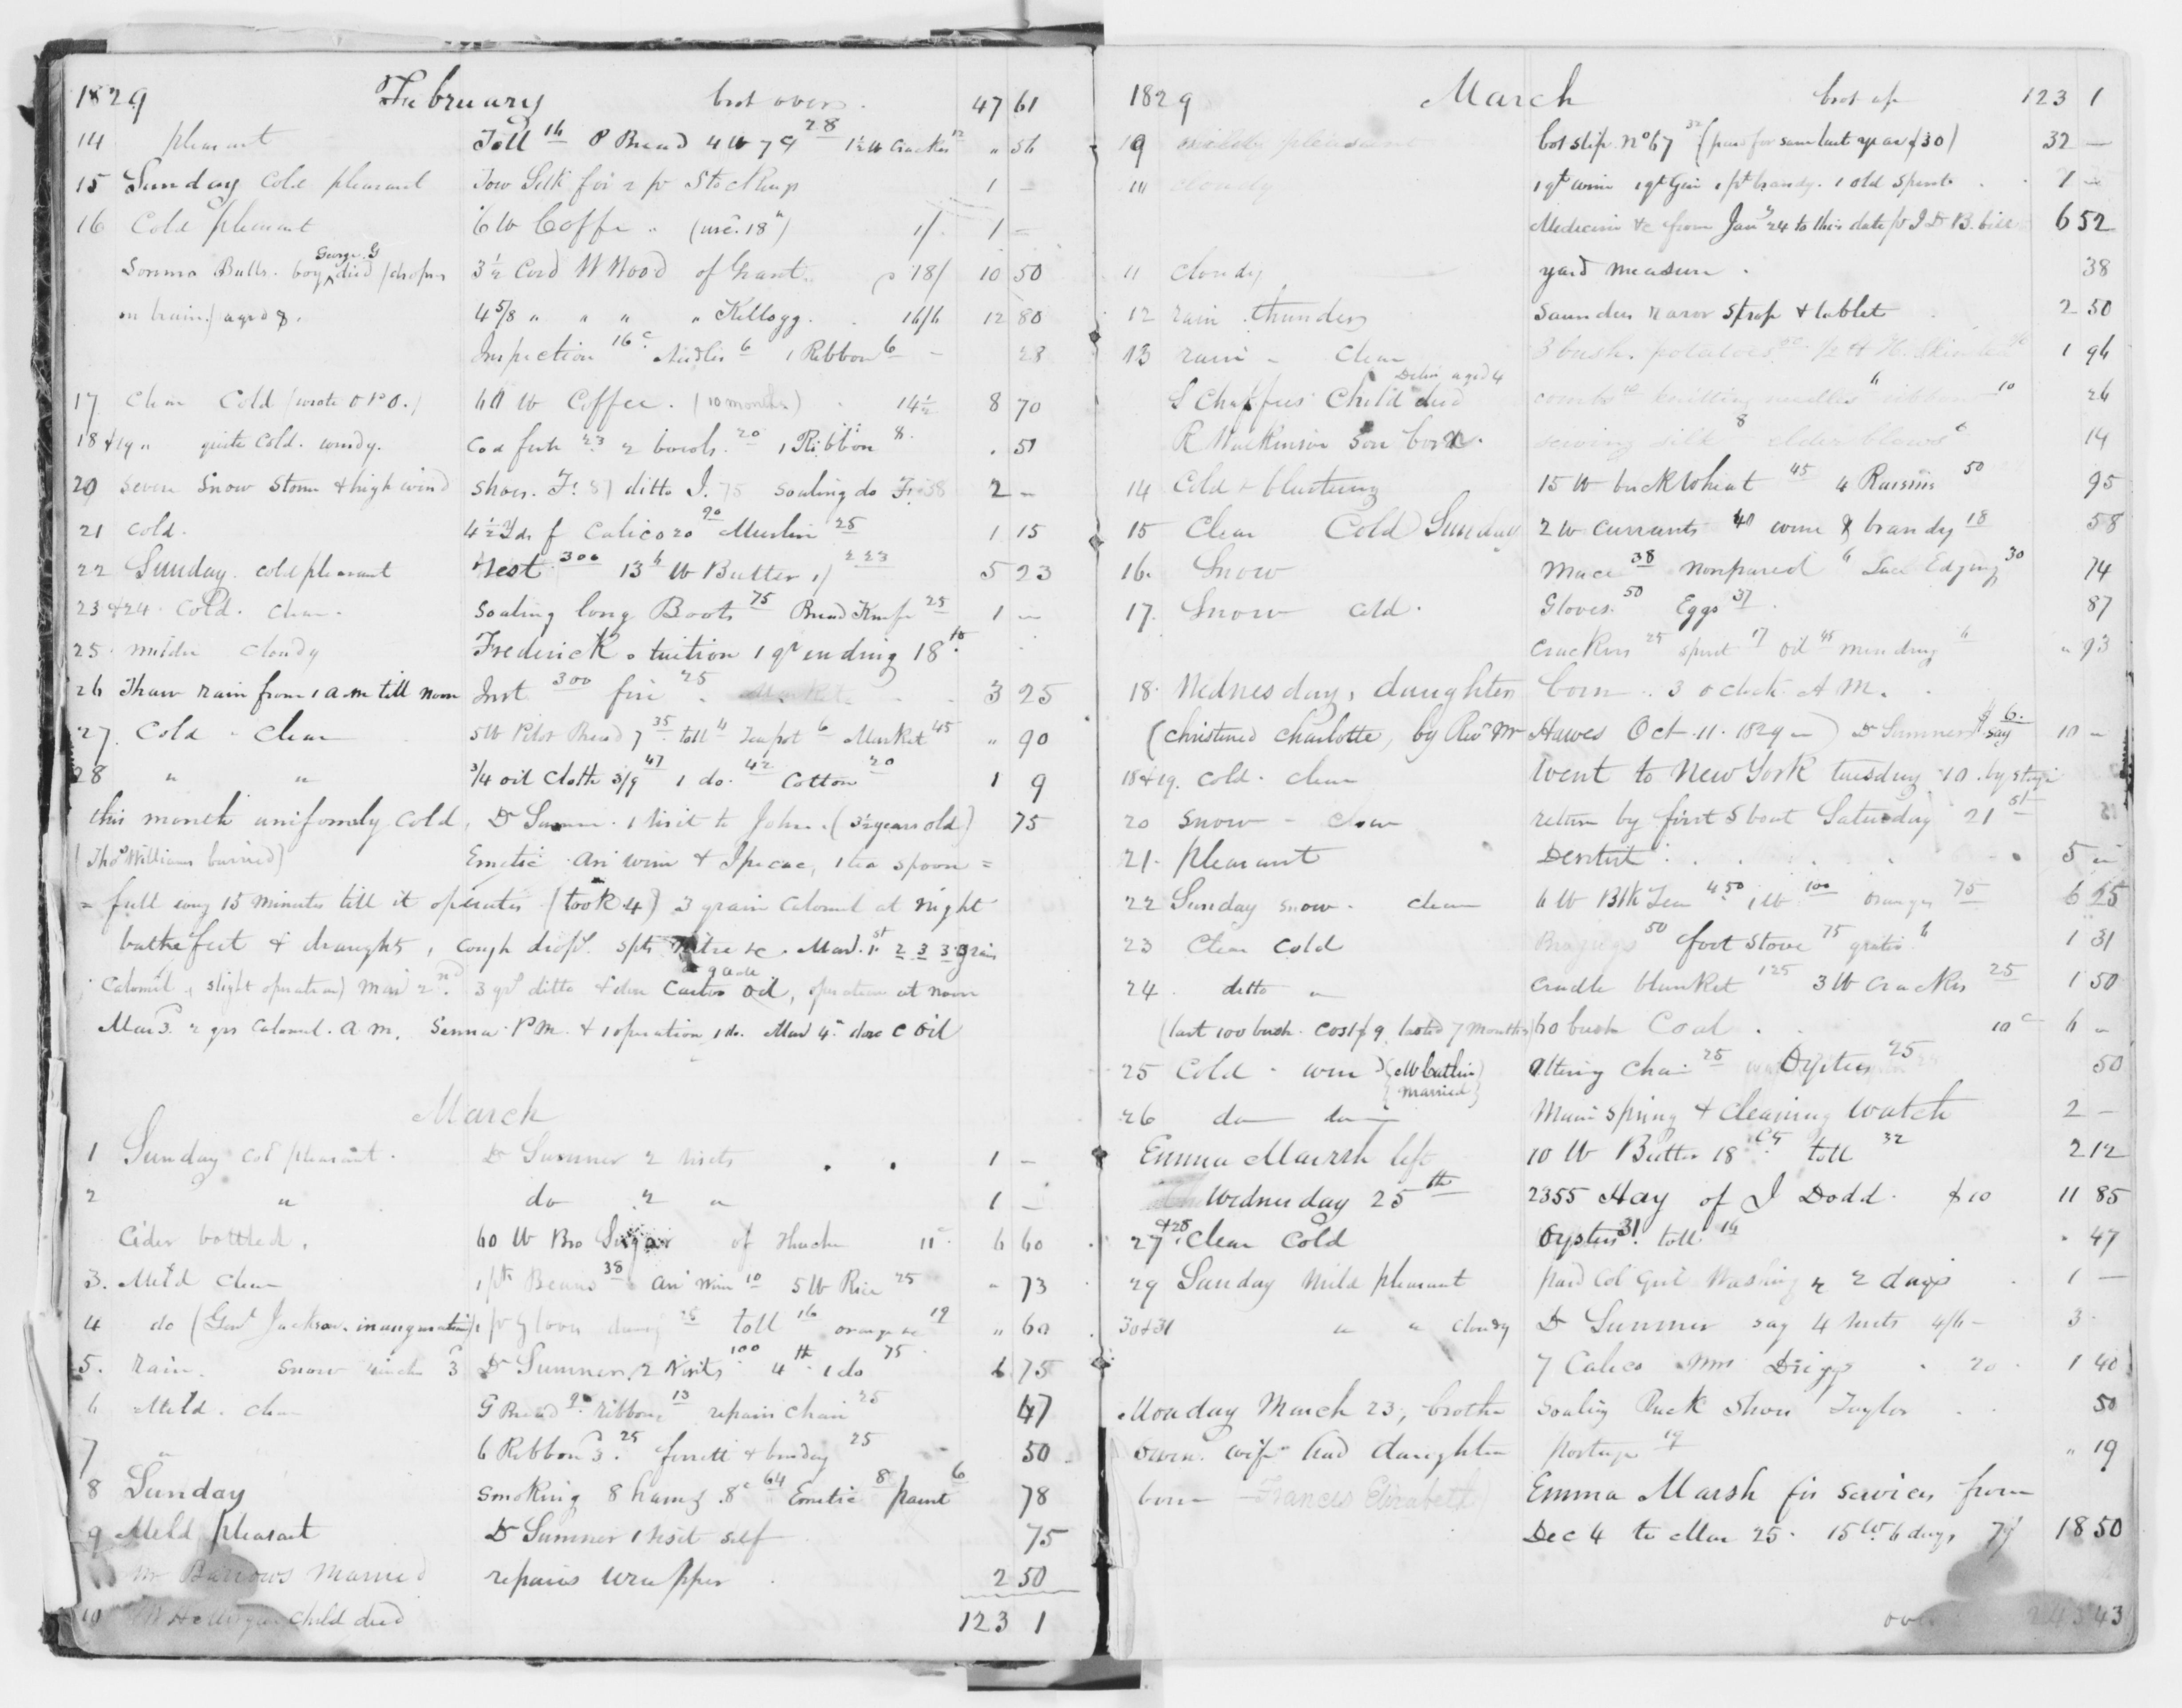 1829 February brot over. 47 61
14 pleasant Toll 16 P Bread 4 lb 7 9 28 1½ lb Crackers 12 " 56
15 Sunday Cold pleasant Tow Silk for 2 pr Stockings 1 –
16 Cold pleasant 6 lb Coffee .. 1/ 1 –
George G
Bulls. boy died (dropsy 3½ Cord W Wood of Grant 18/ 10 50
on brain) aged 8. 4 5/8 " " " " Kellogg. 16/6 12 80
Inspection 16c Needles 6 1 Ribbon 6 – 28
17 Clear Cold lb Coffee. (10 months) 14½ 8 70
18 & 19 " quite Cold. windy. Cod fish 23 2 bowls. 20 1 Ribbon 8. . 51
20 Severe Snow Storm & high wind Shoes. ditto J. 75 Soaling do 38 2 –
21 Cold. 4½ Yds Calico 20 90 Muslin 25 1 15
22 Sunday. cold pleasant 300 13 lb Butter 1/ 223 5 23
23 & 24. Cold. Clear. Soaling long Boots 75 Bread Knife 25 1 –
25. milder cloudy Frederick. tuition 1 qr ending 18th.
26 Thaw rain from 1 a m till noon 300 25 3 25
27. Cold – Clear 5 lb Pilot Bread 7 35 toll 4 Teapot 6 Market 45 " 90
28 " " 3/4 oil Cloth 3/9 47 1 do. 42 Cotton 20 1 9
this month uniformly Cold, Dr Sumner. 1 visit to John. (3½ years old) 75
(Thos Williams buried) Emetic Ant wine & Ipecac, 1 tea spoon =
= full every 15 minutes till it operates (took 4) 3 grain Calomel at night
bathe feet & draughts, Cough drops. spts Nitre &c. Mar. 1st 2 3 3 grain
Calomel, slight operation) Mar 2nd. 3 grs ditto & dose Castor Oil, operation at noon
Mar 3. 2 grs Calomel. A m. Senna P M. & 1 operation 1 do. Mar 4. dose C Oil
March
1 Sunday Cold pleasant. Dr Sumner 2 visits . . 1 –
2 " do 2 " 1 –
Cider bottled. 60 lb Bro Sugar of 11 6 60
3. Mild Clear Beans 38 Ant Wine 10 5 lb Rice 25 – 73
4 do (Genl Jackson inauguration) pr gloves 25 toll 16 orange &c 19 " 60
5. rain. Snow Dr Sumner. 2 visits 100 4th 1 do 75 75
6 Mild. Clear G Bread 9 ribbons 13 repairs Chair 25 47
7 " 6 Ribbon 25 ferrett & binding 25 50
8 Sunday Smoking 8 hams 8c 64 Emetic 8 paint 6 78
9 Mild pleasant Dr Sumner 1 visit self 75
Mr Barrows Married repairs wrapper 2 50
10 Child died 123 1
1829 March brot up 123 1
9 pleasant bot slip No 67 (paid for same last year $30) 32 –
10 cloudy 1 qt wine 1 qt Gin 1 pt brandy. 1 old Spirits . . 1 –
Medicine &c from Jany 24 to this date pr bill 6 52
11 Cloudy yard measure . 38
12 rain thunder Saunders razor Strop & tablet 2 50
13 rain – Clear 3 bush. potatoes 1 96
aged 4
S Chaffees Child died combs knitting needles 6 ribbon 10 26
R Watkinson Son born. sewing silk 8 elder blows 6 14
14 Cold & blustering 15 lb buckwheat 45 4 Raisins 50 95
15 Clear Cold Sunday 2 lb Currants 40 wine & brandy 18 58
16. Snow Mace 38 Nonpareil 6 Lace Edging 30 74
17. Snow Cold. Gloves. 50 Eggs 37. 87
Crackers 25 spirit 17 oil 45 mending 6 " 93
18. Wednesday, daughter born . 3 o clock A M.
(christened Charlotte, by Revd Mr Hawes Oct. 11. 1829 –) Dr Sumner $6. say 10 –
18 & 19. Cold. clear Went to New York tuesday 10. by stage
20 Snow – clear return by first S boat Saturday 21st
21. Pleasant Dentist . . . . . . 5 –
22 Sunday snow. clear 6 lb Blk Tea 450 1 lb 100 oranges 75 6 25
23 Clear Cold 50 foot Stove 75 grater 6 1 31
24. ditto " Cradle blanket 125 3 lb Crackers 25 1 50
(last 100 bush. Cost $9. lasted 7 months) 60 bush Coal . . 10c 6 –
25 Cold – (Catlin married) Chair 25 Oysters 25 50
26 do do Main Spring & Cleaning Watch 2 –
Emma Marsh left 10 lb Butter 18 toll 32 2 12
Wednesday 25th 2355 Hay of J Dodd. $10 11 85
27 & 28. Clear Cold Oysters 31. toll 16 . 47
29 Sunday Mild pleasant paid Col girl Washing 2 days . 1 –
30 & 31 " " cloudy Dr Sumner say 4 visits 4/6 – 3.
7 Calico Mrs Driggs . 20 . 1 40
Monday March 23, brother Soaling Buck Shoes Taylor . . 50
wife had daughter postage 19 " 19
born Frances Elizabeth Emma Marsh for services from
Dec 4 to Mar 25. 15 w. 6 days 7/ 18 50
over 243 43